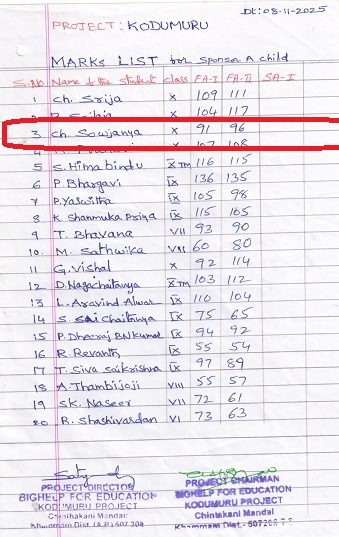 Dt:08-11-2025
PROJECT: KODUMURU
MARKS LIST for Sponsor A child
S.No Name of the Student class FA-I FA-II SA-I
1 Ch. Srija X 109 111
X 104 117
3 Ch. Sowjanya X 91 96
4 107 108
5 S. Himabindu X TM 116 115
6 P. Bhargavi IX 136 135
7 P. Yaswitha IX 105 98
8 K. Shanmuka Priya IX 115 105
9 T. Bhavana VII 93 90
10. M. Sathwika VII 60 80
11 G. Vishal X 92 114
12 D. Nagachaitanya X TM 103 112
13 L. Aravind Alwar IX 110 104
14 S. Sai Chaitanya IX 75 65
15 P. Dheeraj BN Kumar IX 94 92
16 R. Revanth IX 55 54
17 T. Siva Saikrishna IX 97 89
18 A. Thambijoji VIII 55 57
19 SK. Naseer VII 72 61
20 R. Shashivardan VI 73 63
PROJECT DIRECTOR
BIGHELP FOR EDUCATION
KODUMURU PROJECT
Chinthakani Mandal
Khammam Dist. (A.P.) 507 208
PROJECT CHAIRMAN
BIGHELP FOR EDUCATION
KODUMURU PROJECT
Chintakani Mandal
Khammam Dist.-507208